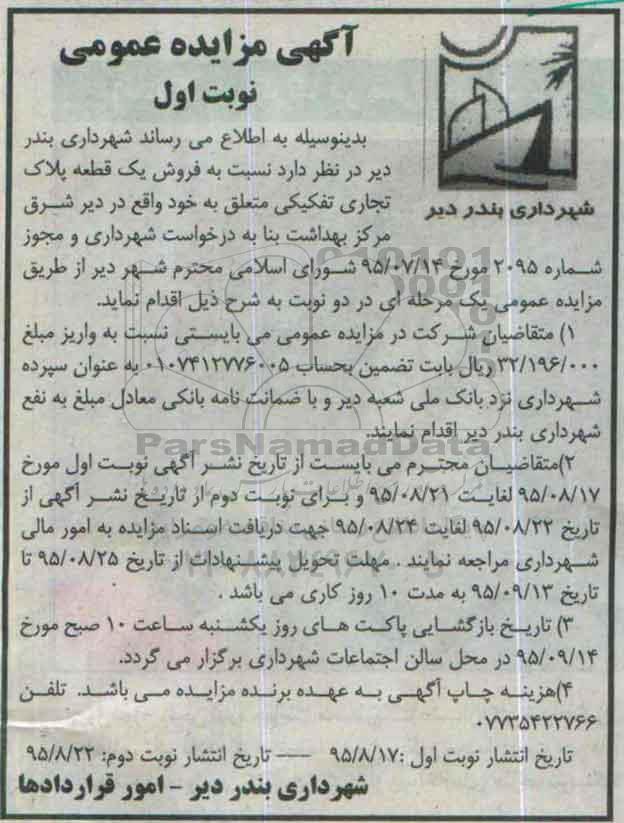 آگهی مزایده عمومی
نوبت اول
شهرداری بندر دیر
بدینوسیله به اطلاع می رساند شهرداری بندر
دیر در نظر دارد نسبت به فروش یک قطعه پلاک
تجاری تفکیکی متعلق به خود واقع در دیر شرق
مرکز بهداشت بنا به درخواست شهرداری و مجوز
شماره ۲۰۹۵ مورخ ۹۵/۰۷/۱۴ شورای اسلامی محترم شهر دیر از طریق
مزایده عمومی یک مرحله ای در دو نوبت به شرح ذیل اقدام نماید.
۱) متقاضیان شرکت در مزایده عمومی می بایستی نسبت به واریز مبلغ
۳۲/۱۹۶/۰۰۰ ریال بابت تضمین بحساب ۰۱۰۷۴۱۲۷۷۶۰۰۵ به عنوان سپرده
شهرداری نزد بانک ملی شعبه دیر و با ضمانت نامه بانکی معادل مبلغ به نفع
شهرداری بندر دیر اقدام نمایند.
ParsNamadData
۲)متقاضیان محترم می بایست از تاریخ نشر آگهی نوبت اول مورخ
۹۵/۰۸/۱۷ لغایت ۹۵/۰۸/۲۱ و برای نوبت دوم از تاریخ نشر آگهی از
تاریخ ۹۵/۰۸/۲۲ لغایت ۹۵/۰۸/۲۴ جهت دریافت اسناد مزایده به امور مالی
شهرداری مراجعه نمایند . مهلت تحویل پیشنهادات از تاریخ ۹۵/۰۸/۲۵ تا
تاریخ ۹۵/۰۹/۱۳ به مدت ۱۰ روز کاری می باشد .
۳) تاریخ بازگشایی پاکت های روز یکشنبه ساعت ۱۰ صبح مورخ
۹۵/۰۹/۱۴ در محل سالن اجتماعات شهرداری برگزار می گردد.
۴)هزینه چاپ آگهی به عهده برنده مزایده می باشد. تلفن
۰۷۷۳۵۴۲۲۷۶۶
تاریخ انتشار نوبت اول :۹۵/۸/۱۷ --- تاریخ انتشار نوبت دوم: ۹۵/۸/۲۲
شهرداری بندر دیر - امور قراردادها